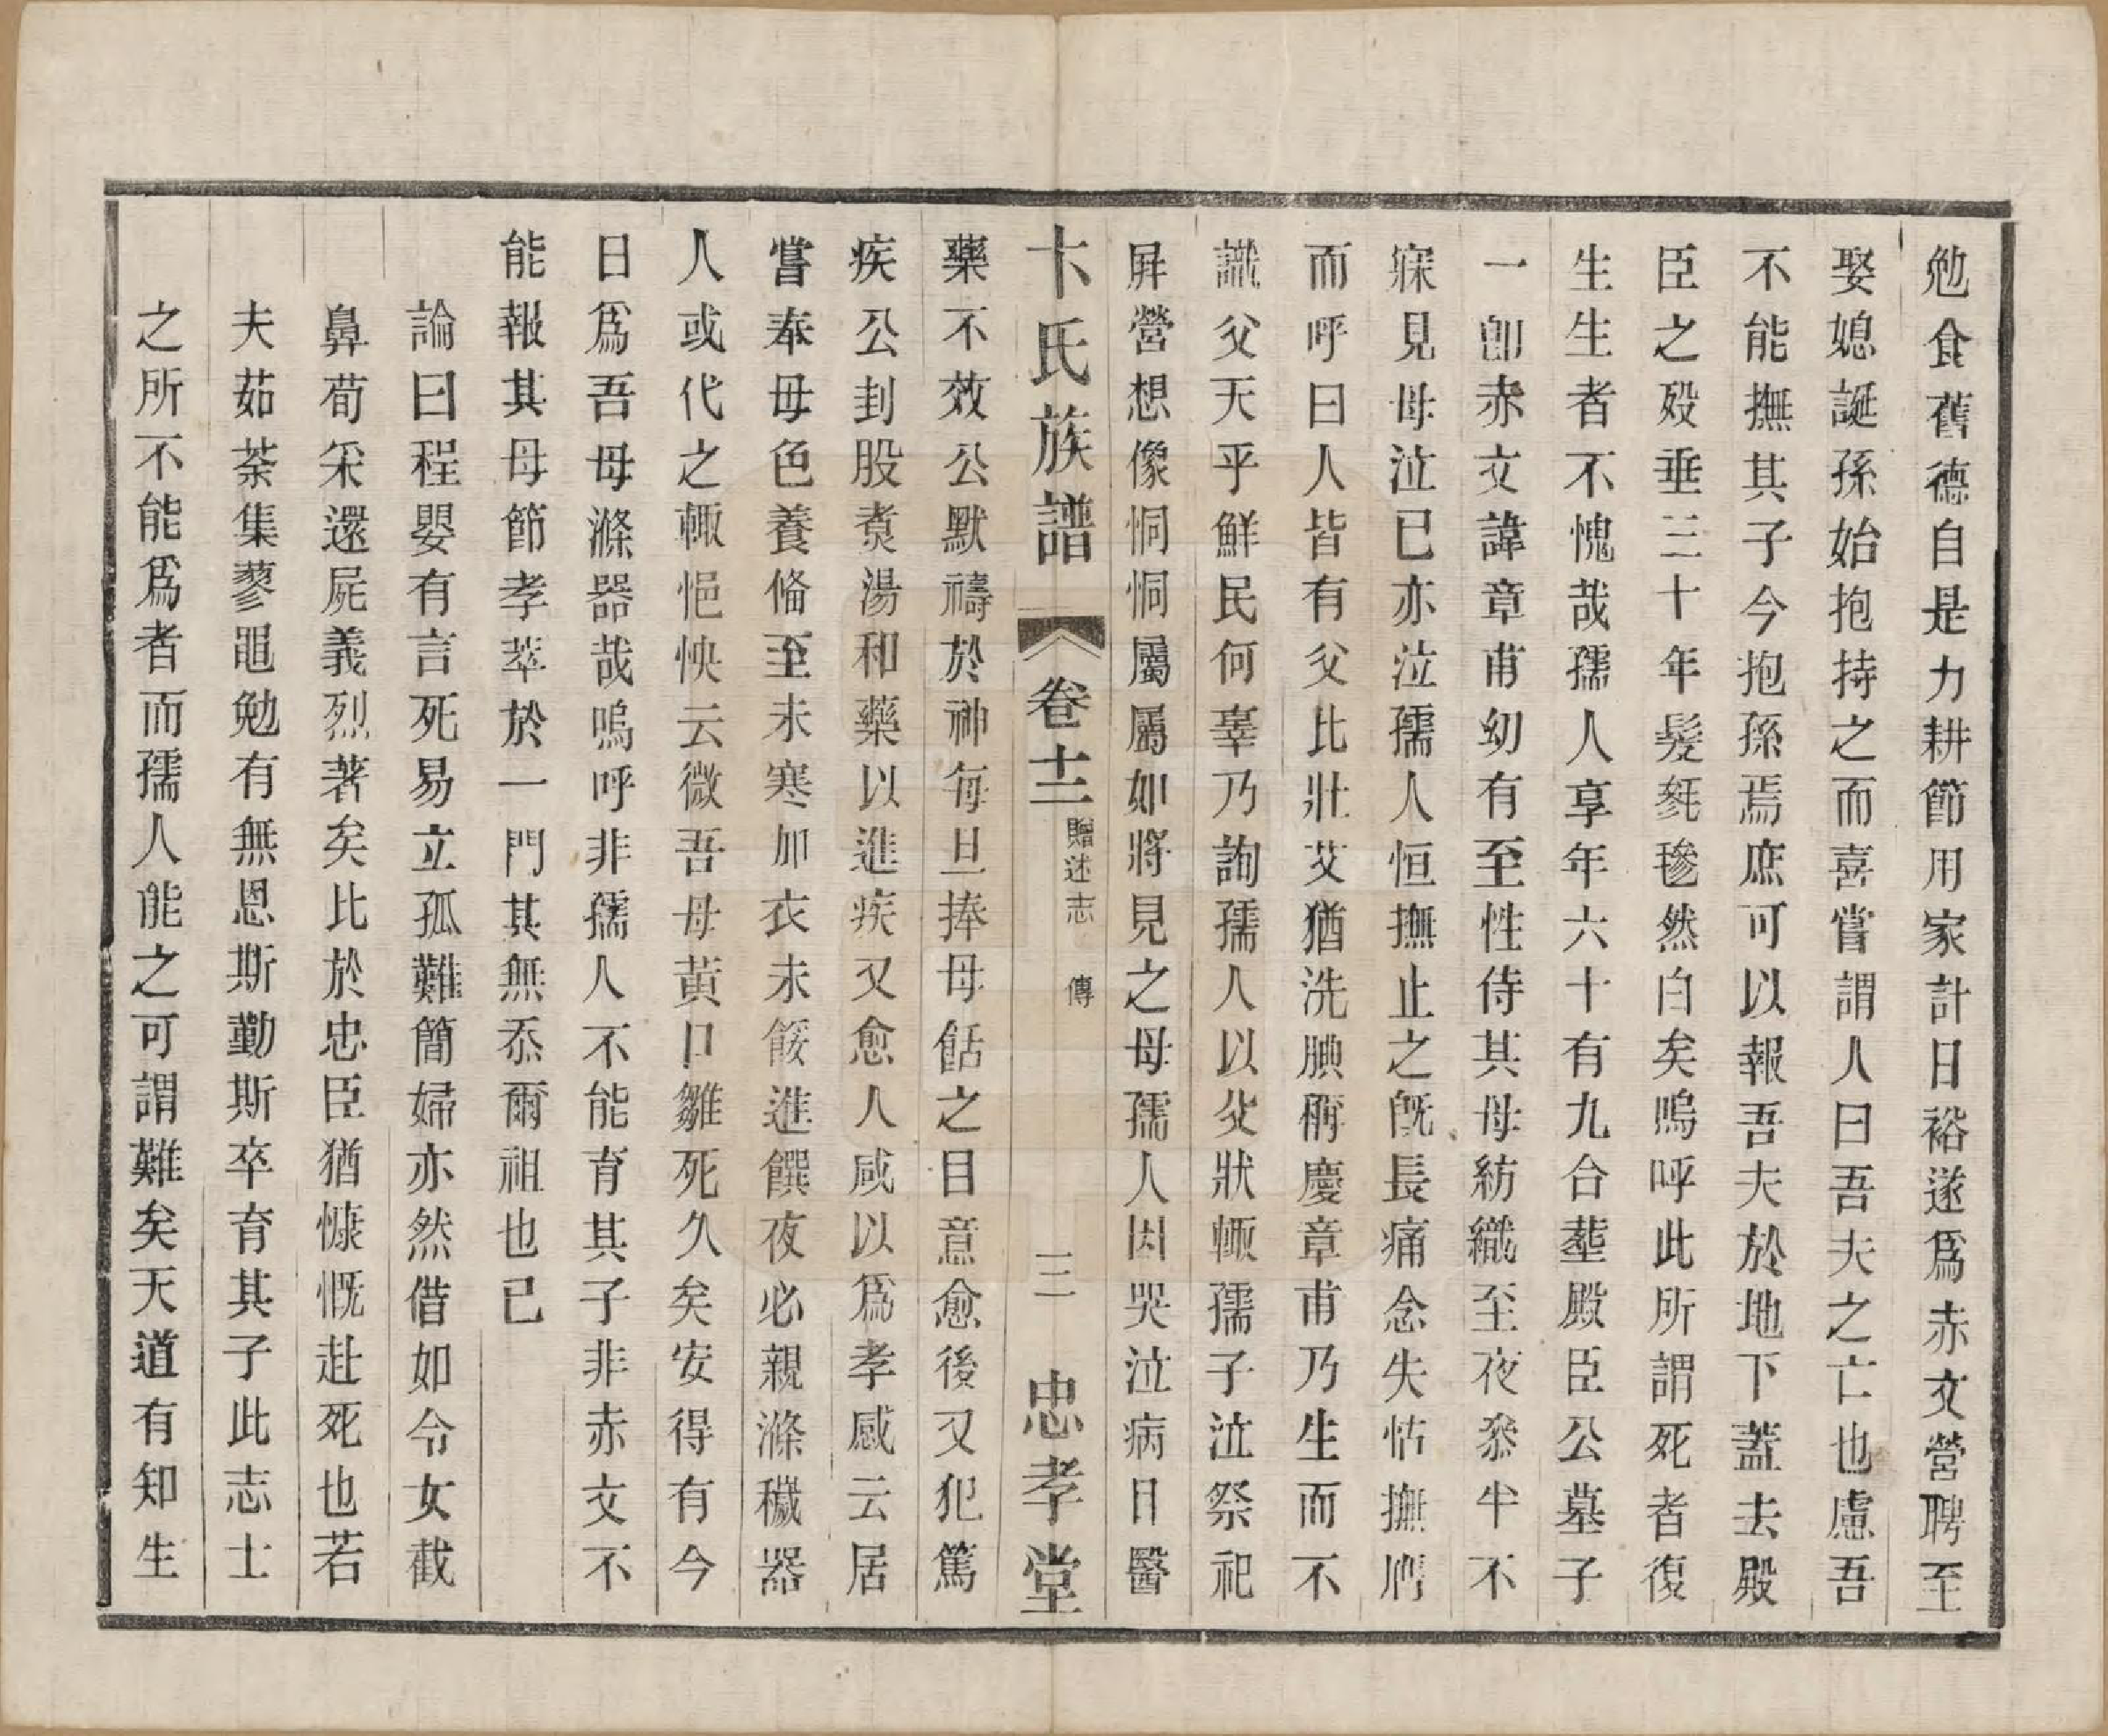 勉食舊德自是力耕節用家計日裕遂爲赤文營聘至
娶媳誕孫始抱持之而喜嘗謂人曰吾夫之亡也慮吾
不能撫其子今抱孫焉庶可以報吾夫於地下蓋去殿
臣之歿垂三十年髮毿毿然白矣嗚呼此所謂死者復
生生者不愧哉孺人享年六十有九合塟殿臣公墓子
一卽赤文諱章甫幼有至性侍其母紡織至夜叅半不
寐見母泣已亦泣孺人恒撫止之旣長痛念失怙撫膺
而呼曰人皆有父比壯艾猶洗腆稱慶章甫乃生而不
識父天乎鮮民何辜乃詢孺人以父狀輒孺子泣祭祀
屛營想像恫恫屬屬如將見之母孺人因哭泣病目醫
卞氏族譜 卷十二 贈述志 傳 三 忠孝堂
藥不效公默禱於神每旦捧母䑛之目意愈後又犯篤
疾公刲股煑湯和藥以進疾又愈人咸以爲孝感云居
嘗奉母色養偹至未寒加衣未餒進饌夜必親滌穢器
人或代之輒悒怏云微吾母黃口雛死久矣安得有今
日爲吾母滌器哉嗚呼非孺人不能育其子非赤文不
能報其母節孝萃於一門其無忝爾祖也已
論曰程嬰有言死易立孤難簡婦亦然借如令女截
鼻荀采還屍義烈著矣比於忠臣猶慷慨赴死也若
夫茹荼集蓼黽勉有無恩斯勤斯卒育其子此志士
之所不能爲者而孺人能之可謂難矣天道有知生